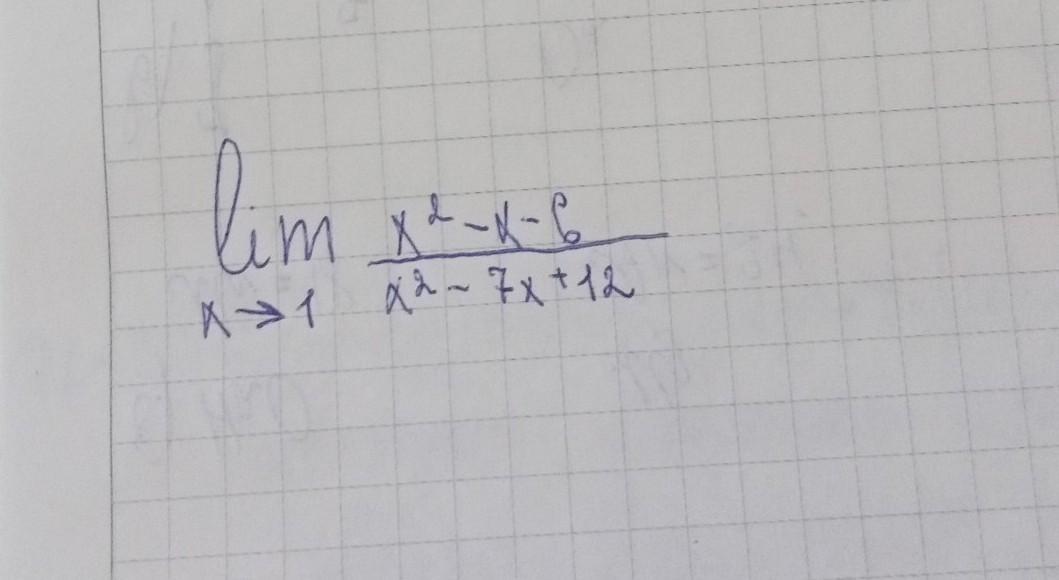 lim x² - x - 6
x → 1 x² - 7x + 12